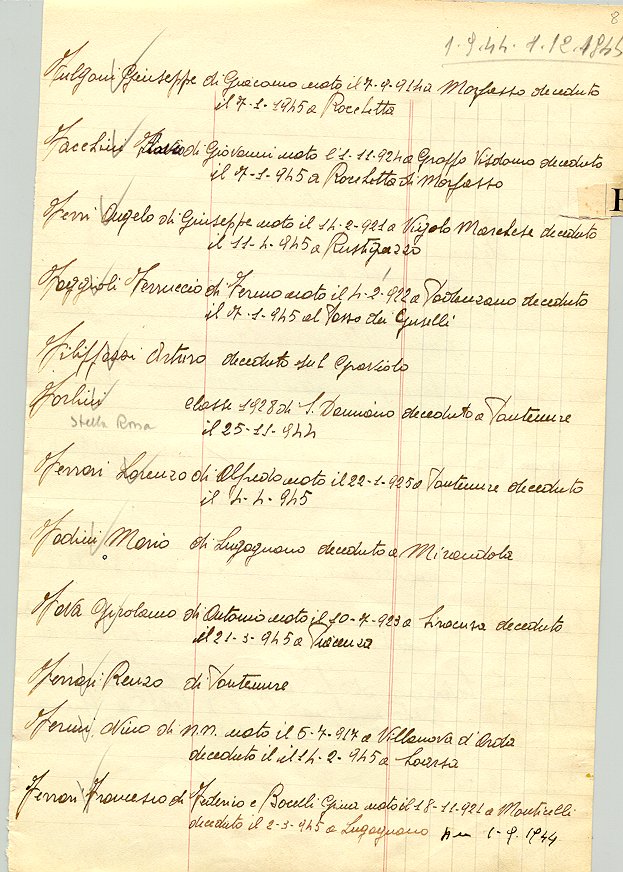 8
1-9-44. 1-12.1944
Fulgoni Giuseppe di Giacomo nato il 7-9-914 a Morfasso deceduto
il 7-1-1945 a Rocchetta
Facchini di Giovanni nato l'1-11-924 a Groppo Visdomo deceduto
il 7-1-945 a Rocchetta di Morfasso
H
Ferri Angelo di Giuseppe nato il 14-2-921 a Vigolo Marchese deceduto
il 11-4-945 a Rustigazzo
Faggioli Ferruccio di Fermo nato il 4-2-922 a Pontenzano deceduto
il 7-1-945 al Passo dei Guselli
Filippazzi Arturo deceduto sul Groviolo
Forlini classe 1928 di S. Damiano deceduto a Pontenure
Stella Rossa
il 25-11-944
Ferrari Lorenzo di Alfredo nato il 22-1-925 a Pontenure deceduto
il 4-4-945
Fodini Mario di Lugagnano deceduto a Mirandola
Fava Girolamo di Antonio nato il 10-7-923 a Siracusa deceduto
il 21-3-945 a Piacenza
Ferrari Renzo di Pontenure
Fermi Nino di N.N. nato il 5-7-917 a Villanova d'Arda
deceduto il il 14-2-945 a
Ferrari Francesco di Federico e Bocelli Gina nato il 18-11-921 a Monticelli
deceduto il 2-3-945 a Lugagnano 1-9-1944